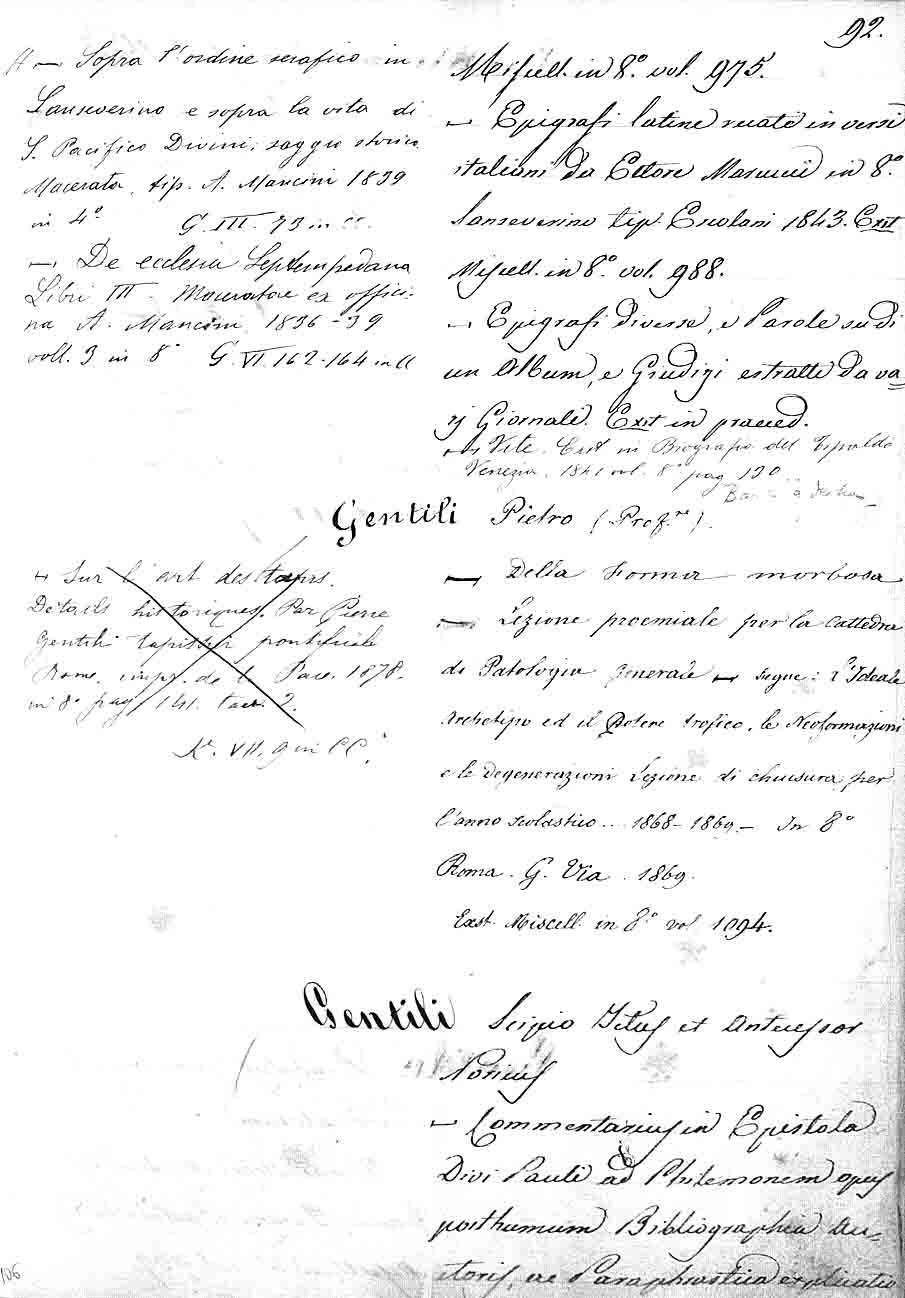 92.
— Sopra l'ordine serafico in
Sanseverino e sopra la vita di
S. Pacifico Divini, saggio storico
Macerata, tip. A. Mancini 1839
in 4° G. III. 73 in cc.
— De ecclesia Septempedana
Libri III. Maceratae ex offici-
na A. Mancini, 1836-39
voll. 3 in 8° G. VI. 162-164 in cc
Miscell. in 8.° vol. 975.
— Epigrafi latine recate in versi
italiani da Ettore Marcucci in 8.°
Sanseverino tip. Ercolani 1843. Exst
Miscell. in 8.° vol. 988.
— Epigrafi diverse, e Parole su di
un Album, e Giudizi estratti da va=
rj Giornali. Exst in praeced.
— Vite. Exst in Biografia del Tipaldo
Venezia. 1841 vol. 8° pag 130
Gentili Pietro (Prof.re).
— Sur l'art des tapis.
Détails historiques. Par Pierre
Gentili tapissier pontificale
Rome, imp. de la Pace. 1878.
in 8° pag 141. tav. 2.
K. VII. 9 in CC.
— Della Forma morbosa
— Lezione proemiale per la cattedra
di Patologia generale — segue: L'Ideale
Archetipo ed il Potere trofico, le Neoformazioni
e le degenerazioni Lezione di chiusura per
l'anno scolastico... 1868-1869 — In 8°
Roma. G. Via. 1869.
Exst. Miscell. in 8.° vol 1094.
Gentili Scipio Ictus et Antecessor
Noricus
— Commentarius in Epistola
Divi Pauli ad Philemonem opus
posthumum Bibliographia Au=
ctoris, ac Paraphrastica explicatio
106